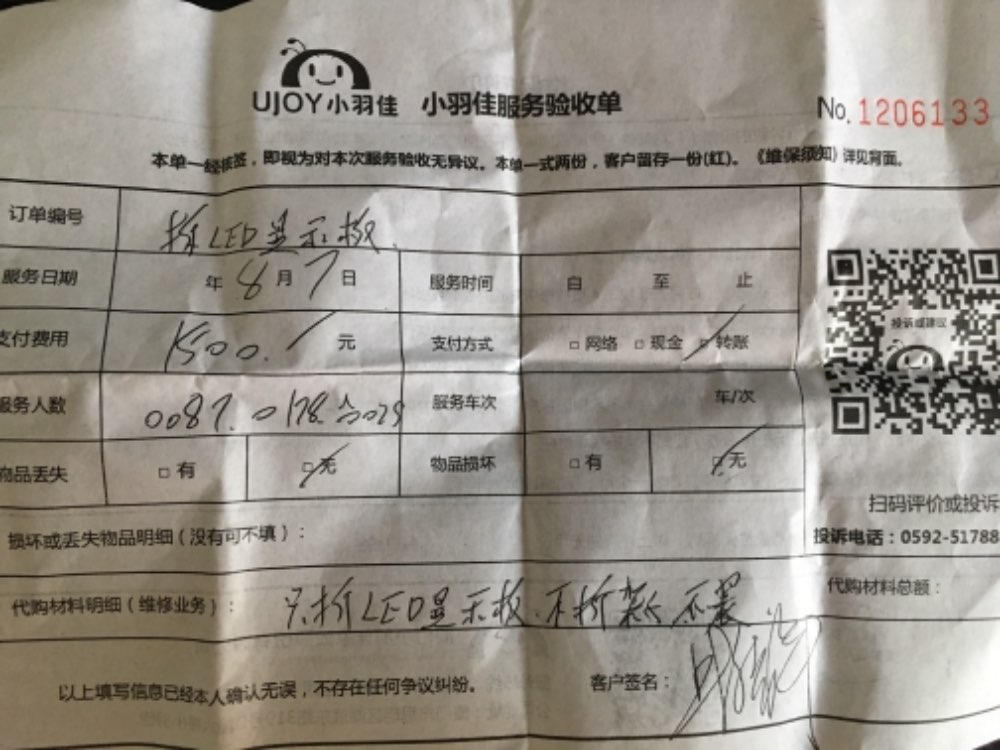 UJOY小羽佳 小羽佳服务验收单
No. 1206133
本单一经核签，即视为对本次服务验收无异议。本单一式两份，客户留存一份(红)。《维保须知》详见背面。
订单编号 拆LED显示板
服务日期 年 8月7日 服务时间 自 至 止
支付费用 1500. 元 支付方式 □网络 □现金 □转账
投诉或建议
服务人数 0087. 0178. 服务车次 车/次
物品丢失 □有 □无 物品损坏 □有 □无
扫码评价或投诉
损坏或丢失物品明细（没有可不填）：
投诉电话：0592-51788
代购材料明细（维修业务）： 只拆LED显示板.不拆 不
代购材料总额：
以上填写信息已经本人确认无误，不存在任何争议纠纷。 客户签名：